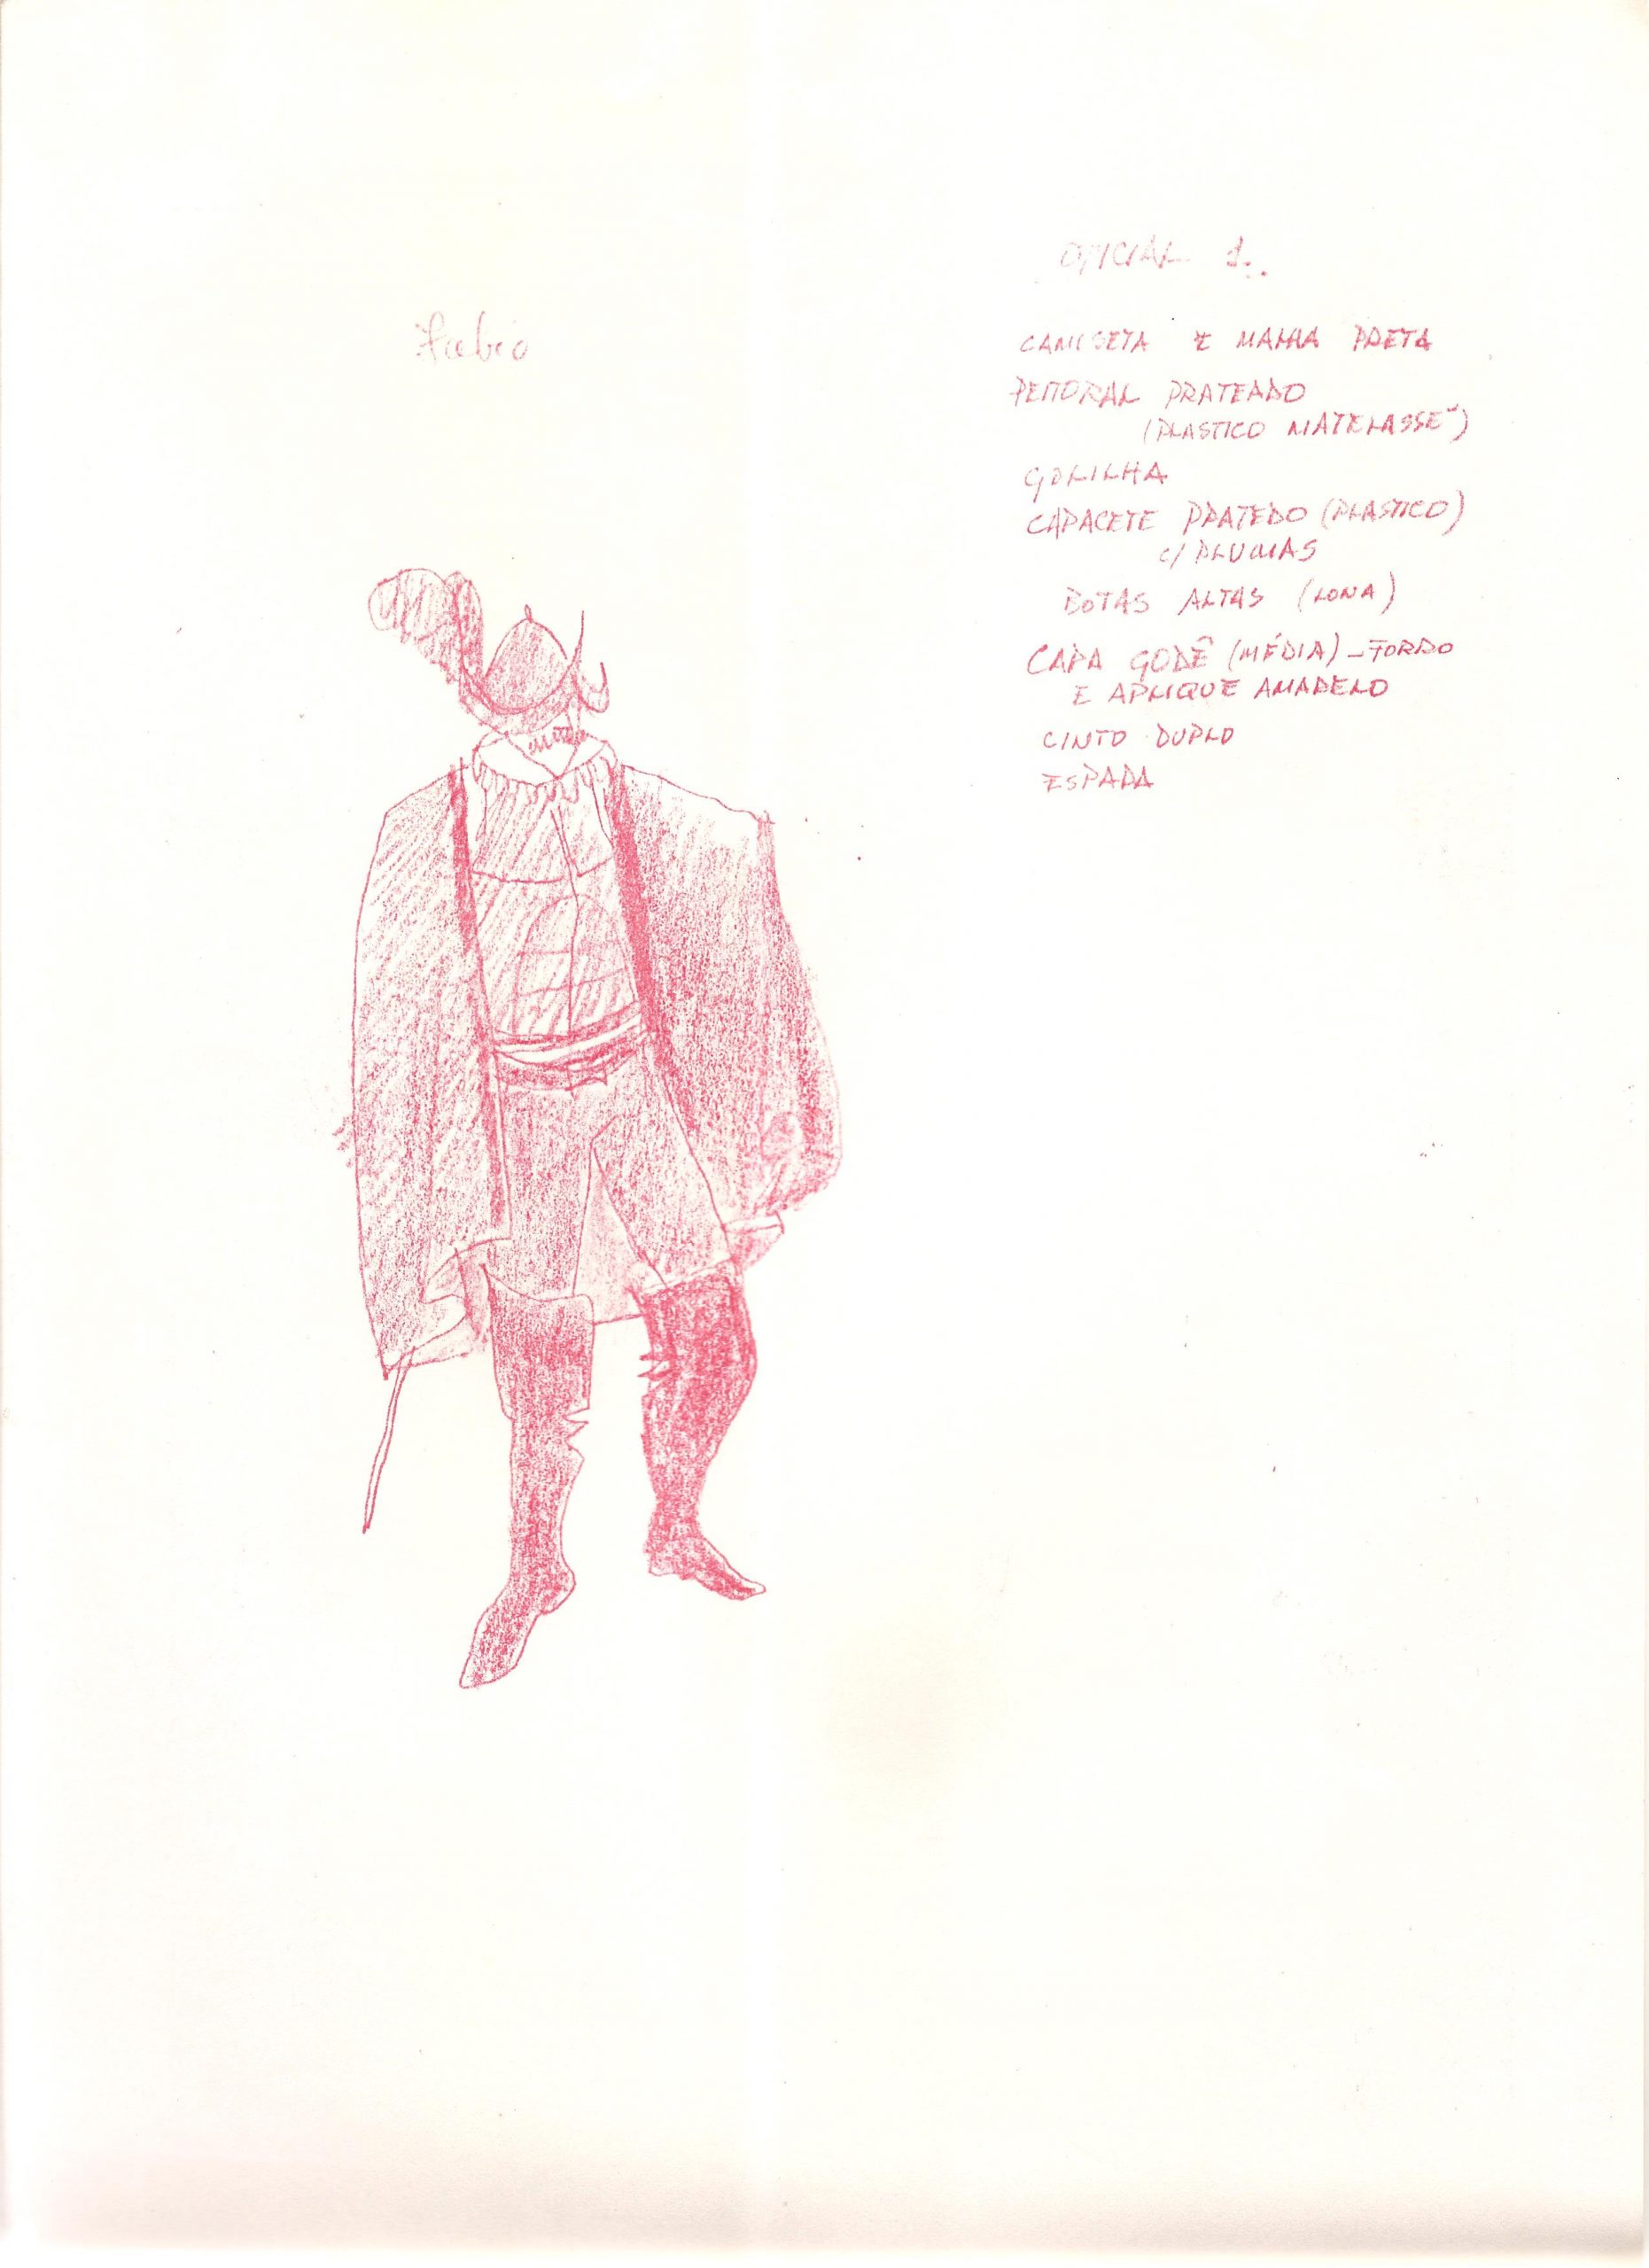 OFICIAL 1.
Fabio
CAMISETA E MALHA PRETA
PEITORAL PRATEADO
(PLASTICO MATELASSE)
GOLILHA
CAPACETE PRATEDO (PLASTICO)
C/ PLUMAS
BOTAS ALTAS (LONA)
CAPA GODÊ (MÉDIA) - FORRO
E APLIQUE AMARELO
CINTO DUPLO
ESPADA